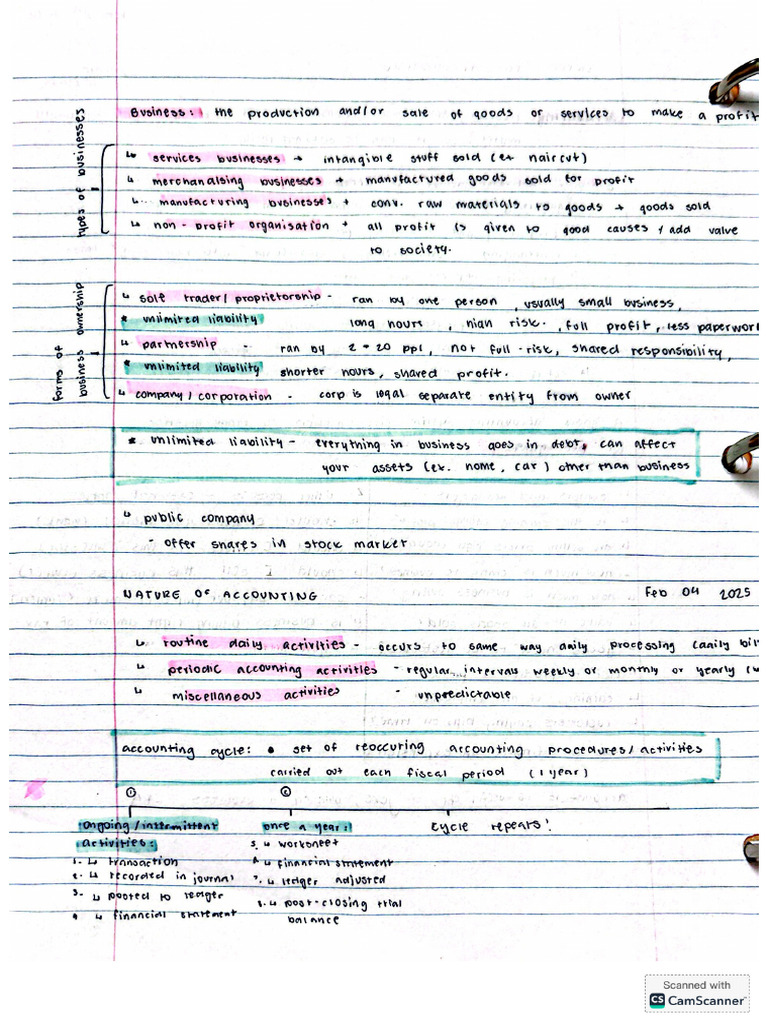 Business: the production and/or sale of goods or services to make a profit
types of businesses
↳ services businesses → intangible stuff sold (ex haircut)
↳ merchandising businesses → manufactured goods sold for profit
↳ manufacturing businesses → conv. raw materials to goods → goods sold
↳ non-profit organisation → all profit is given to good causes / add value
to society.
forms of business ownership
↳ sole trader/proprietorship - ran by one person, usually small business,
* unlimited liability long hours, high risk., full profit, less paperwor
↳ partnership - ran by 2-20 ppl, not full-risk, shared responsibility,
* unlimited liability shorter hours, shared profit.
↳ company/corporation - corp is legal separate entity from owner
* unlimited liability - everything in business goes in debt, can affect
your assets (ex. home, car) other than business
↳ public company
- offer shares in stock market
NATURE OF ACCOUNTING Feb 04 2025
↳ routine daily activities - occurs to same way daily processing (daily bil
↳ periodic accounting activities - regular intervals weekly or monthly or yearly (
↳ miscellaneous activities - unpredictable
accounting cycle: • set of reoccuring accounting procedures/activities
carried out each fiscal period (1 year)
① ②
ongoing/intermittent once a year: cycle repeats!
activities: 5. ↳ worksheet
1. ↳ transaction 6. ↳ financial statement
2. ↳ recorded in journal 7. ↳ ledger adjusted
3. ↳ posted to ledger 8. ↳ post-closing trial
4 ↳ financial statement balance
Scanned with
CS CamScanner